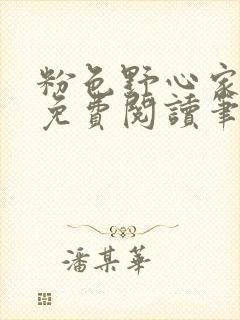 粉色野心家
免費閱讀筆
潘某華